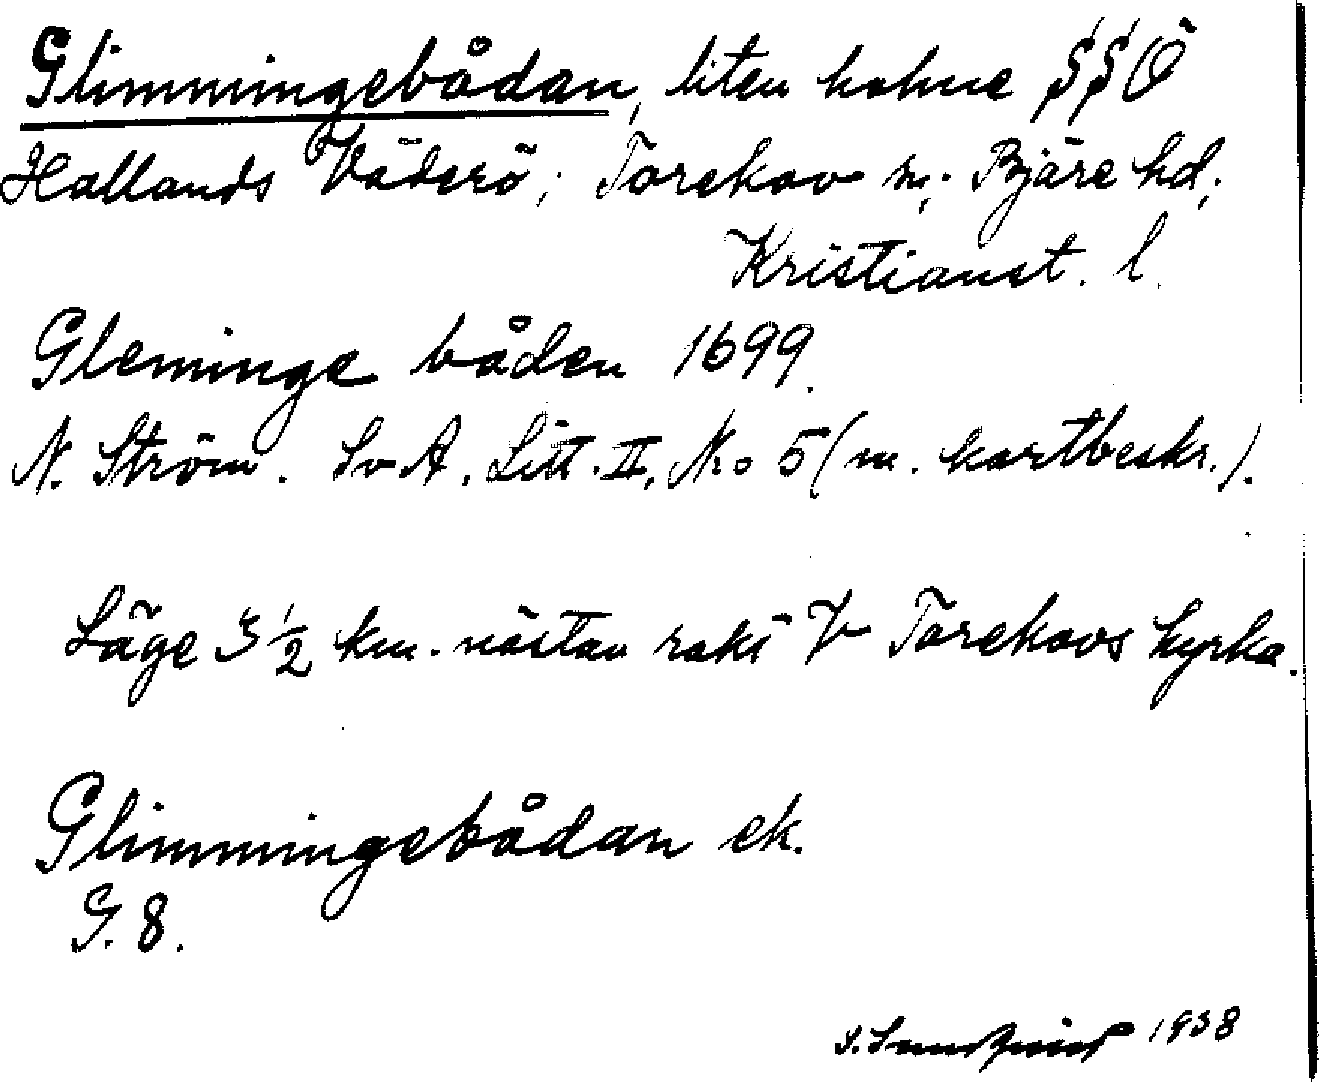 Glimmingebådan, liten holme SSÖ
Hallands Väderö; Torekov s;. Bjäre hd,;
Kristianst. l.
Gleminge båden 1699.
N. Ström. Sv A. Litt. II, No 5 (m. kartbeskr.).
Läge 3 1/2 km. nästan rakt V Torekovs kyrka.
Glimmingebådan ek.
G. 8.
1938